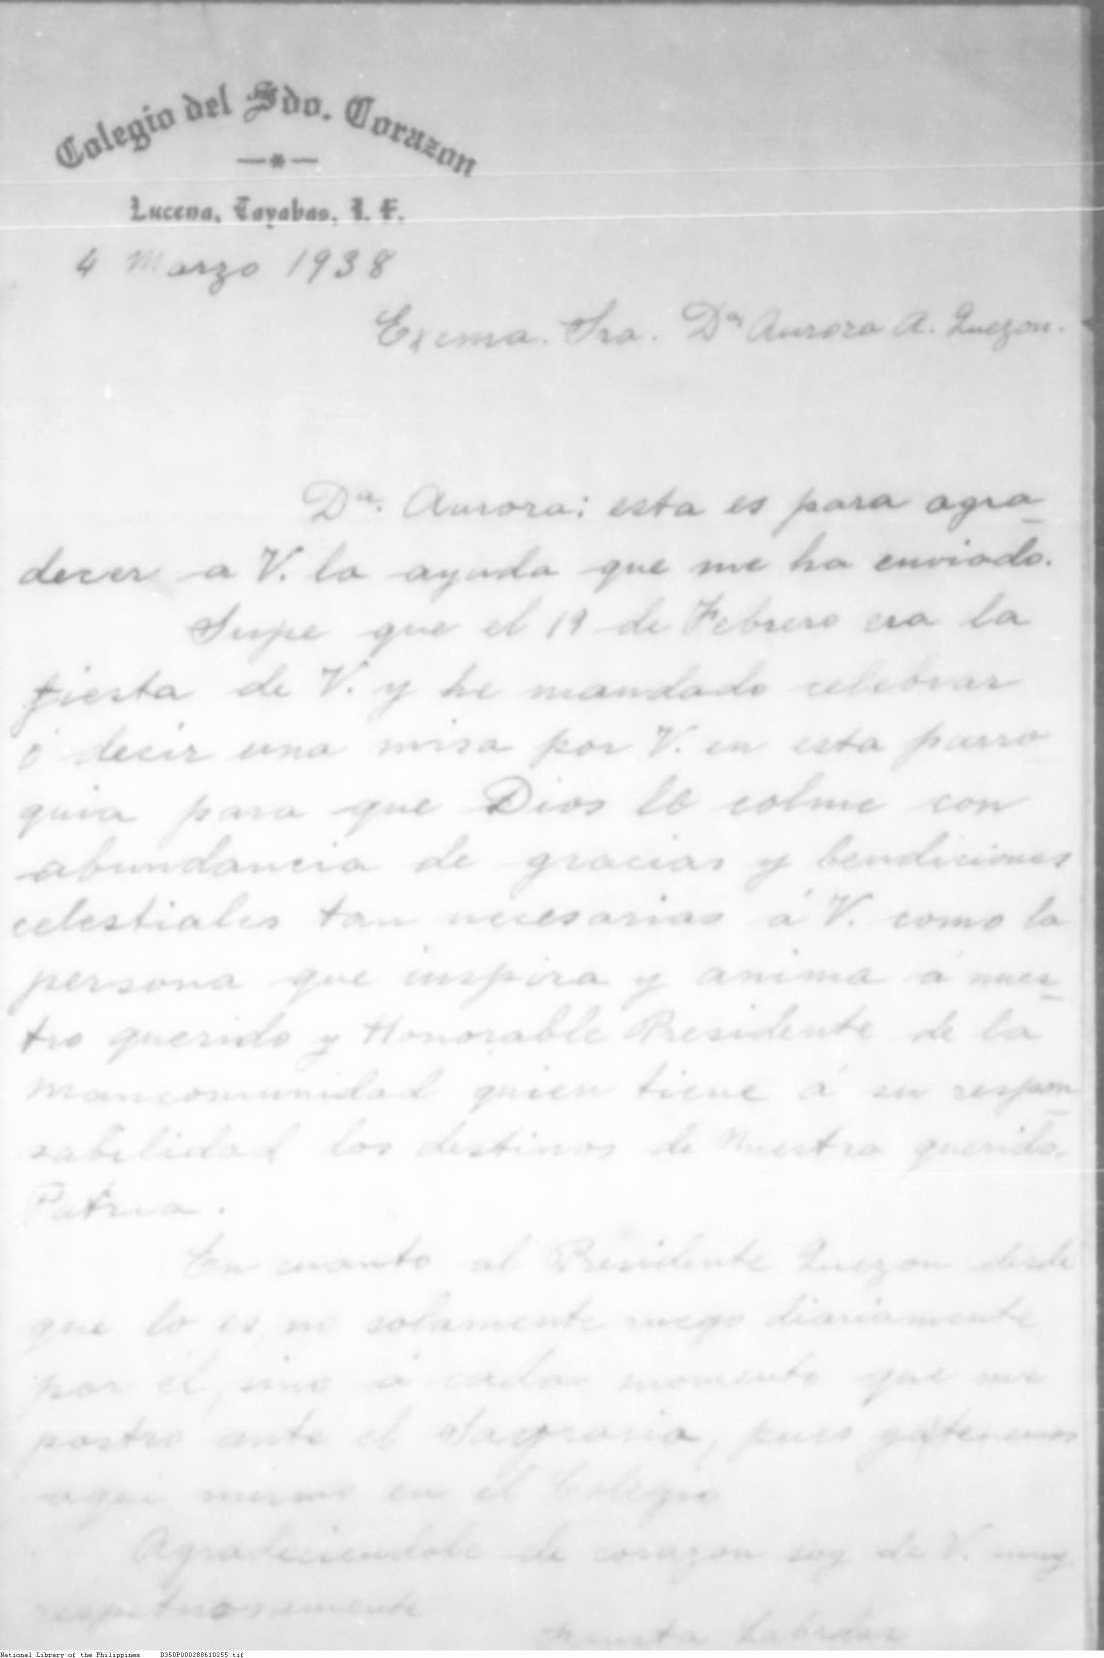 Colegio del Sdo. Corazon
Lucena, Tayabas, I. F.
4 Marzo 1938
Excma. Sra. Dª Aurora A. Quezon.
Dª. Aurora: esta es para agra-
decer a V. la ayuda que me ha enviado.
Supe que el 19 de Febrero era la
fiesta de V. y he mandado celebrar
ó decir una misa por V. en esta parro
quia para que Dios le colme con
abundancia de gracias y bendiciones
celestiales tan necesarias á V. como la
persona que inspira y anima á nues-
tro querido y Honorable Presidente de la
Mancomunidad quien tiene á su respon-
sabilidad los destinos de Nuestra querida
Patria.
En cuanto al Presidente Quezon desde
que lo es, no solamente ruego diariamente
por él, sino á cada momento que me
postro ante el Sagrario, pues ya tenemos
aqui mismo en el Colegio
Agradeciendole de corazon soy de V. muy
respetuosamente
Labrador
National Library of the Philippines D350P000288610255.tif